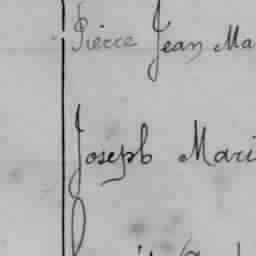 Pierre Jean Ma
Joseph Mari